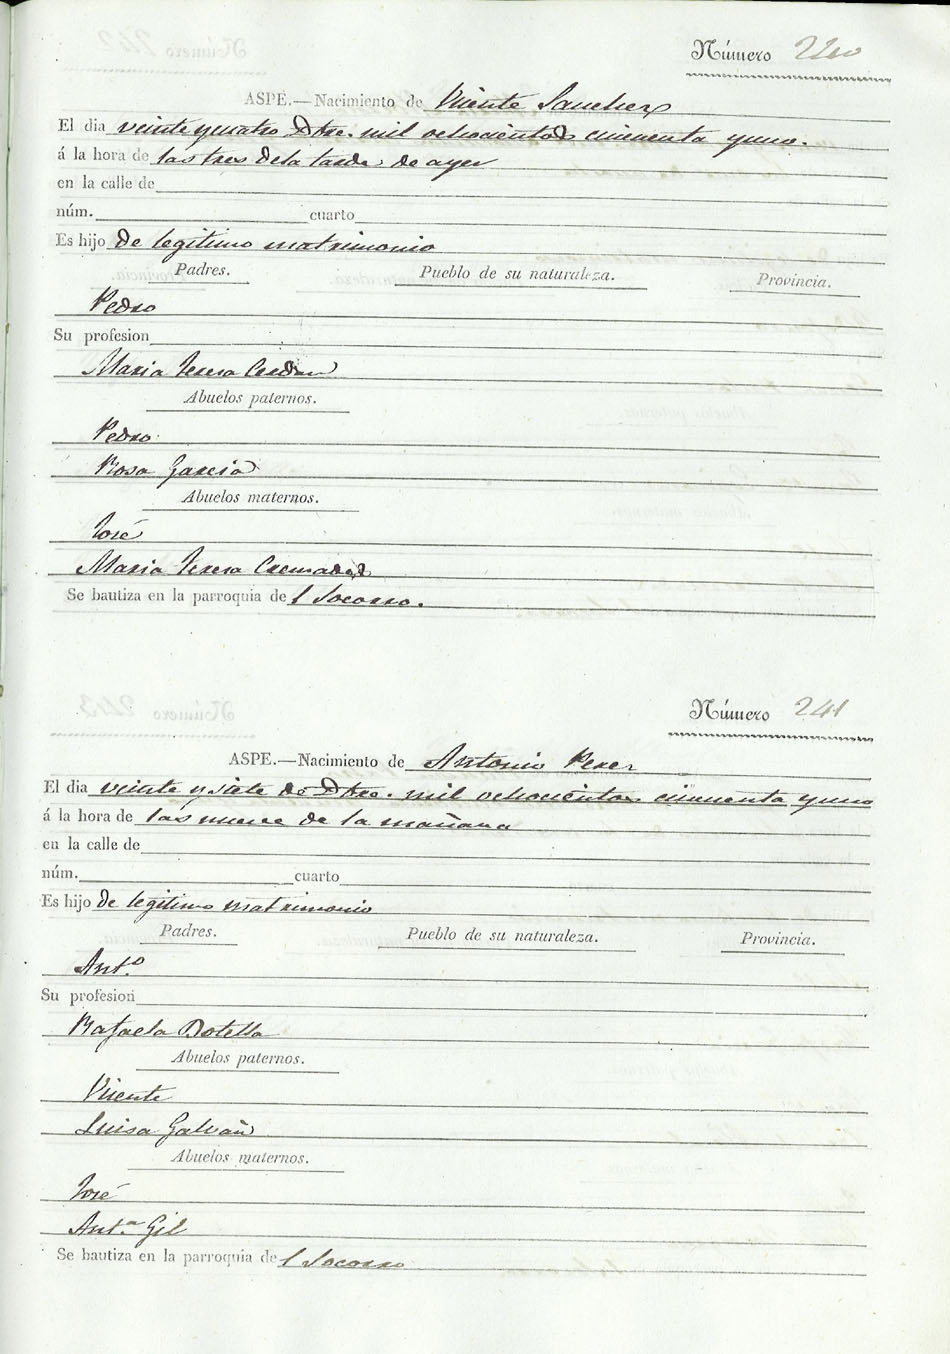 Número 240
ASPE.—Nacimiento de Vicente Sanchez
El dia veinte y cuatro Dbre. mil ochocientos cincuenta y uno.
á la hora de las tres dela tarde de ayer
en la calle de
núm. cuarto
Es hijo de legitimo matrimonio
Padres. Pueblo de su naturaleza. Provincia.
Pedro
Su profesion
Maria Teresa Cerdan
Abuelos paternos.
Pedro
Rosa Garcia
Abuelos maternos.
José
Maria Teresa Cremades
Se bautiza en la parroquia de l Socorro.
Número 241
ASPE.—Nacimiento de Antonio Perez
El dia veinte y siete de Dbre. mil ochocientos cincuenta y uno
á la hora de las nueve de la mañana
en la calle de
núm. cuarto
Es hijo de legitimo matrimonio
Padres. Pueblo de su naturaleza. Provincia.
Ant.º
Su profesion
Rafaela Botella
Abuelos paternos.
Vicente
Luisa Galvañ
Abuelos maternos.
José
Ant.ª Gil
Se bautiza en la parroquia de l Socorro